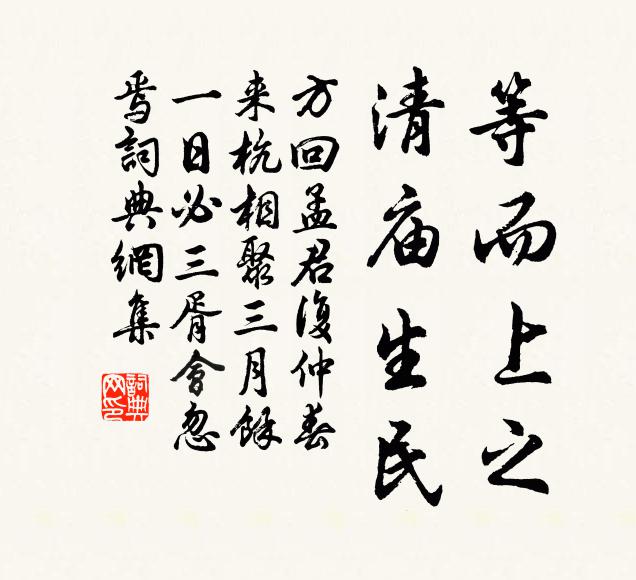 等而上之
清庙生民
方回孟君復仲春
来杭相聚三月餘
一日必三胥會忽
焉詞典網集
詞典
网印